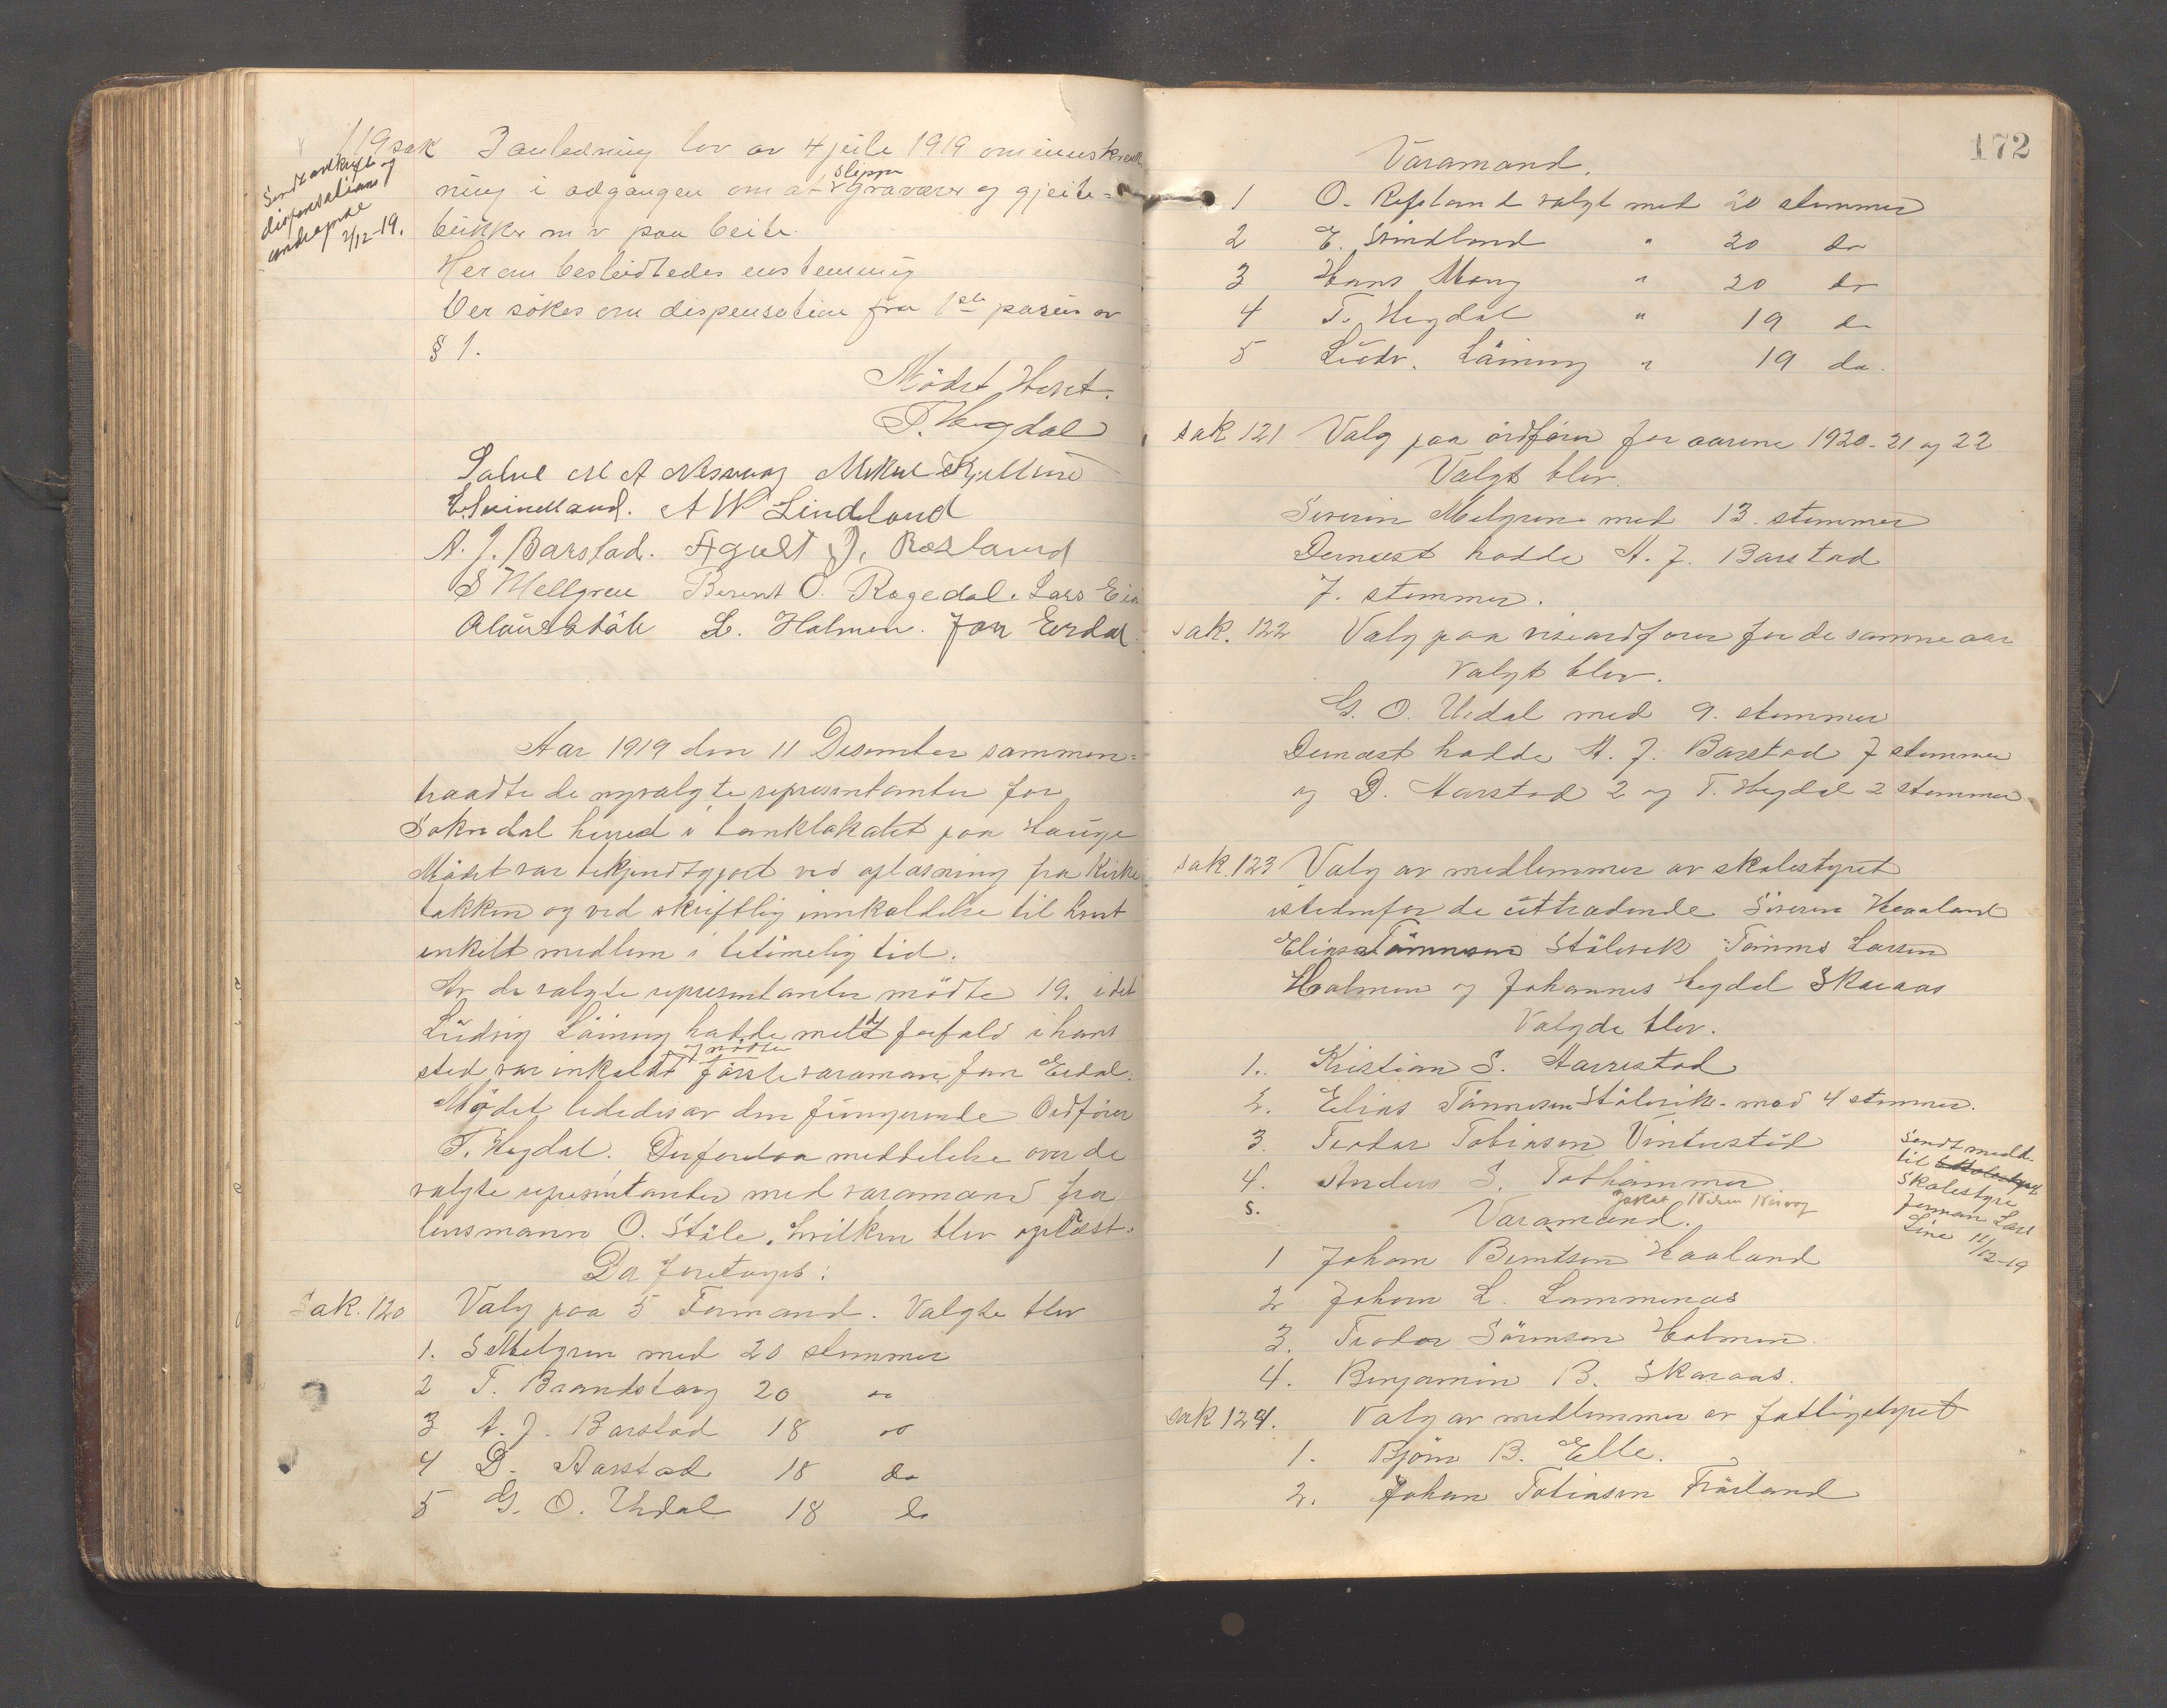 119 sak I anledning lov av 4 juli 1919 om innskrænk
ning i adgangen om at slippe graværer og gjeite-
bukker m v paa beite.
Sendt avskrift og
dispensations
andragende
2/12-19.
Herom besluttedes enstemmig
Der sökes om dispensation fra 1ste pasus av
§ 1.
Mödet Hevet.
T. Hegdal
Salve M A Nesvaag Mikal Kjelland
E. Svindland. A W Lindland
A. J. Barstad. Agult J. Rosland
S Mellgren Berent O. Regedal. Lars Eia
Claus Ståle L. Holmen. Jon Eerdal.
Aar 1919 den 11 Desember sammen-
traadte de nyvalgte representanter for
Sokndal herred i banklokalet paa Hauge
Mödet var bekjendtgjort ved oplæsning fra Kirke
bakken og ved skriftlig innkaldelse til hvert
enkelt medlem i betimelig tid.
Av de valgte representanter mödte 19. idet
Ludvig Löining hadde meldt forfald i hans
sted var inkaldt og mödte förste varamann Jon Eerdal.
Mödet lededes av den fungerende Ordförer
T. Hegdal. Der forelaa meddelelse over de
valgte representanter med varamænd fra
lensmann O. Ståle, hvilken blev oplæst.
Da foretoges:
Sak. 120 Valg paa 5 Formænd. Valgte blev
1. S Melgren med 20 stemmer
2 T. Brandsberg 20 do
3 A. J. Barstad 18 do
4 D. Aarstad 18 do
5 G. O. Urdal 18 do
172
Varamænd.
1 O. Refsland valgt med 20 stemmer
2 E. Svindland " 20 do
3 Hans Mong " 20 do
4 T. Hegdal " 19 do
5 Ludv. Löining " 19 do.
sak 121 Valg paa ordförer for aarene 1920-21 og 22
Valgt blev.
Severin Melgren med 13. stemmer
Dernæst hadde A. J. Barstad
7. stemmer.
sak. 122 Valg paa viseordforer for de samme aar
Valgt blev.
G. O. Urdal med 9. stemmer
Dernæst hadde A. J. Barstad 7 stemmer
og D. Aarstad 2 og T. Hegdal 2 stemmer.
sak. 123 Valg av medlemmer av skolestyret
istedenfor de uttrædende Severin Haaland
Elias Tönnesen Stölsvik Tönnes Larsen
Holmen og Johannes Hegdal Skaraas
Valgde blev.
1. Kristian S. Aarrestad
2. Elias Tönnesen Stölsvik - med 4 stemmer.
3. Teodor Tobiasen Vinterstöl
4. Anders S. Tothammer
5.
Varamænd.
Sendt medd.
til
Skolestyre
forman Lars
11/12-19
1 Johan Berntsen Haaland
2 Johan L. Lammenæs
3. Teodor Sörensen Holmen.
4. Benjamin B. Skaraas.
sak 124. Valg av medlemmer av fattigstyret
1. Björn B. Elle.
2. Johan Tobiasen Fröiland